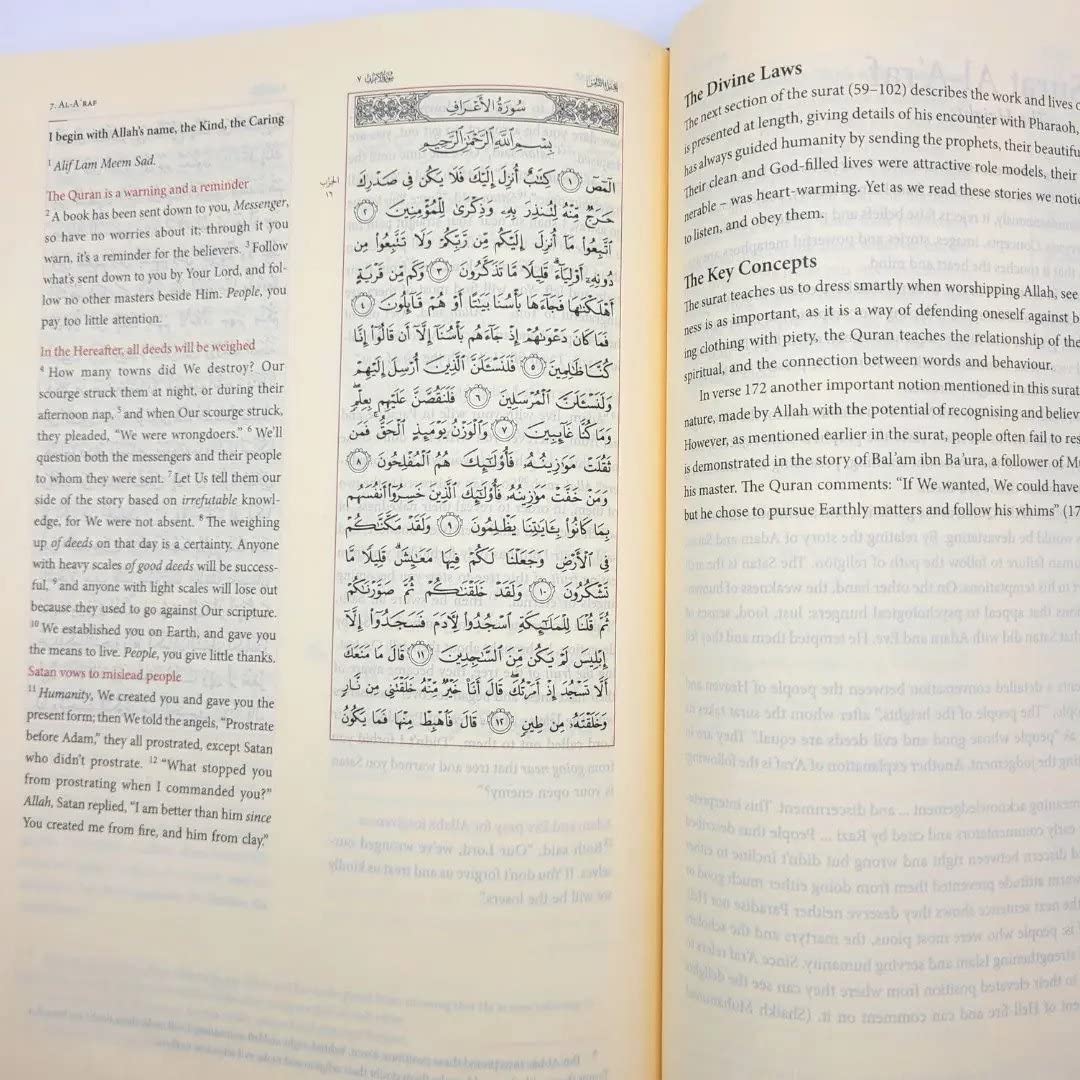 7. AL-A'RAF
I begin with Allah's name, the Kind, the Caring
1 Alif Lam Meem Sad.
The Quran is a warning and a reminder
2 A book has been sent down to you, Messenger,
so have no worries about it; through it you
warn, it's a reminder for the believers. 3 Follow
what's sent down to you by Your Lord, and fol-
low no other masters beside Him. People, you
pay too little attention.
In the Hereafter, all deeds will be weighed
4 How many towns did We destroy? Our
scourge struck them at night, or during their
afternoon nap, 5 and when Our scourge struck,
they pleaded, “We were wrongdoers.” 6 We'll
question both the messengers and their people
to whom they were sent. 7 Let Us tell them our
side of the story based on irrefutable knowl-
edge, for We were not absent. 8 The weighing
up of deeds on that day is a certainty. Anyone
with heavy scales of good deeds will be success-
ful, 9 and anyone with light scales will lose out
because they used to go against Our scripture.
10 We established you on Earth, and gave you
the means to live. People, you give little thanks.
Satan vows to mislead people
11 Humanity, We created you and gave you the
present form; then We told the angels, “Prostrate
before Adam,” they all prostrated, except Satan
who didn't prostrate. 12 “What stopped you
from prostrating when I commanded you?”
Allah, Satan replied, “I am better than him since
You created me from fire, and him from clay.”
سُورَةُ الأَعْرَافِ
بِسْمِ اللَّهِ الرَّحْمَٰنِ الرَّحِيمِ
الٓمٓصٓ ١ كِتَٰبٌ أُنزِلَ إِلَيْكَ فَلَا يَكُن فِى صَدْرِكَ
حَرَجٌ مِّنْهُ لِتُنذِرَ بِهِۦ وَذِكْرَىٰ لِلْمُؤْمِنِينَ ٢
ٱتَّبِعُوا۟ مَآ أُنزِلَ إِلَيْكُم مِّن رَّبِّكُمْ وَلَا تَتَّبِعُوا۟ مِن
دُونِهِۦٓ أَوْلِيَآءَ ۗ قَلِيلًا مَّا تَذَكَّرُونَ ٣ وَكَم مِّن قَرْيَةٍ
أَهْلَكْنَٰهَا فَجَآءَهَا بَأْسُنَا بَيَٰتًا أَوْ هُمْ قَآئِلُونَ ٤
فَمَا كَانَ دَعْوَىٰهُمْ إِذْ جَآءَهُم بَأْسُنَآ إِلَّآ أَن قَالُوٓا۟ إِنَّا
كُنَّا ظَٰلِمِينَ ٥ فَلَنَسْـَٔلَنَّ ٱلَّذِينَ أُرْسِلَ إِلَيْهِمْ
وَلَنَسْـَٔلَنَّ ٱلْمُرْسَلِينَ ٦ فَلَنَقُصَّنَّ عَلَيْهِم بِعِلْمٍ ۖ
وَمَا كُنَّا غَآئِبِينَ ٧ وَٱلْوَزْنُ يَوْمَئِذٍ ٱلْحَقُّ ۚ فَمَن
ثَقُلَتْ مَوَٰزِينُهُۥ فَأُو۟لَٰٓئِكَ هُمُ ٱلْمُفْلِحُونَ ٨
وَمَنْ خَفَّتْ مَوَٰزِينُهُۥ فَأُو۟لَٰٓئِكَ ٱلَّذِينَ خَسِرُوٓا۟ أَنفُسَهُم
بِمَا كَانُوا۟ بِـَٔايَٰتِنَا يَظْلِمُونَ ٩ وَلَقَدْ مَكَّنَّٰكُمْ
فِى ٱلْأَرْضِ وَجَعَلْنَا لَكُمْ فِيهَا مَعَٰيِشَ ۗ قَلِيلًا مَّا
تَشْكُرُونَ ١٠ وَلَقَدْ خَلَقْنَٰكُمْ ثُمَّ صَوَّرْنَٰكُمْ
ثُمَّ قُلْنَا لِلْمَلَٰٓئِكَةِ ٱسْجُدُوا۟ لِءَادَمَ فَسَجَدُوٓا۟ إِلَّآ
إِبْلِيسَ لَمْ يَكُن مِّنَ ٱلسَّٰجِدِينَ ١١ قَالَ مَا مَنَعَكَ
أَلَّا تَسْجُدَ إِذْ أَمَرْتُكَ ۖ قَالَ أَنَا۠ خَيْرٌ مِّنْهُ خَلَقْتَنِى مِن نَّارٍ
وَخَلَقْتَهُۥ مِن طِينٍ ١٢ قَالَ فَٱهْبِطْ مِنْهَا فَمَا يَكُونُ
The Divine Laws
The next section of the surat (59–102) describes the work and lives
is presented at length, giving details of his encounter with Pharaoh,
has always guided humanity by sending the prophets, their beautiful
Their clean and God-filled lives were attractive role models, their
nerable – was heart-warming. Yet as we read these stories we
to listen, and obey them.
The Key Concepts
The surat teaches us to dress smartly when worshipping Allah, see
ness is as important, as it is a way of defending oneself against
ing clothing with piety, the Quran teaches the relationship of the
spiritual, and the connection between words and behaviour.
In verse 172 another important notion mentioned in this surat
nature, made by Allah with the potential of recognising and
However, as mentioned earlier in the surat, people often fail to
is demonstrated in the story of Bal'am ibn Ba'ura, a follower of
his master. The Quran comments: “If We wanted, We could have
but he chose to pursue Earthly matters and follow his whims”